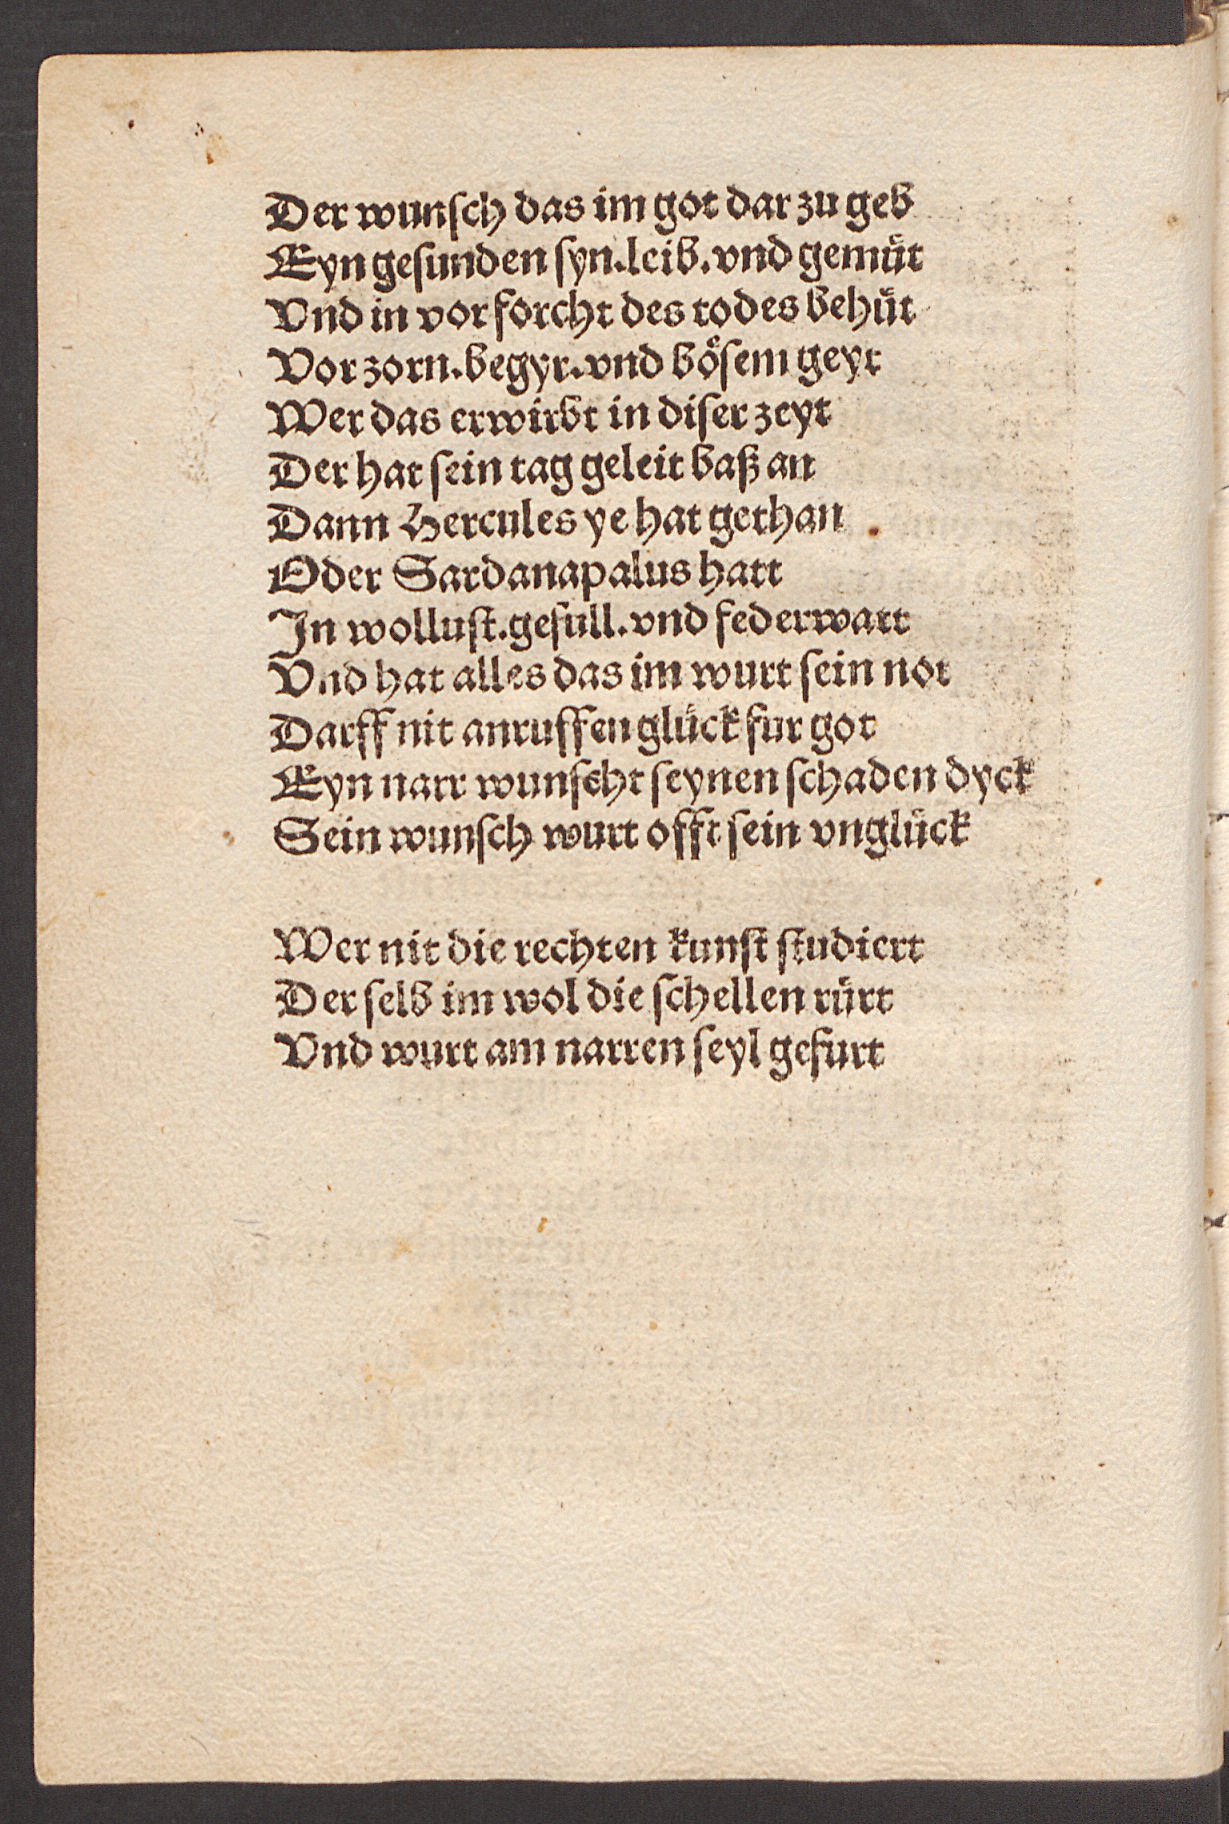 Der wunſch das im got dar zu geb
Eyn geſunden ſyn.leib.vnd gemüt
Vnd in vor forcht des todes behüt
Vor zorn.begyr.vnd böſem geyt
Wer das erwirbt in diſer zeyt
Der hat ſein tag geleit baß an
Dann Hercules ye hat gethan
Oder Sardanapalus hatt
In wolluſt.gefull.vnd federwatt
Vnd hat alles das im wurt ſein not
Darff nit anruffen glück fur got
Eyn narr wunſcht ſeynen ſchaden dyck
Sein wunſch wurt offt ſein vnglück
Wer nit die rechten kunſt ſtudiert
Der ſelb im wol die ſchellen rürt
Vnd wurt am narren ſeyl gefurt